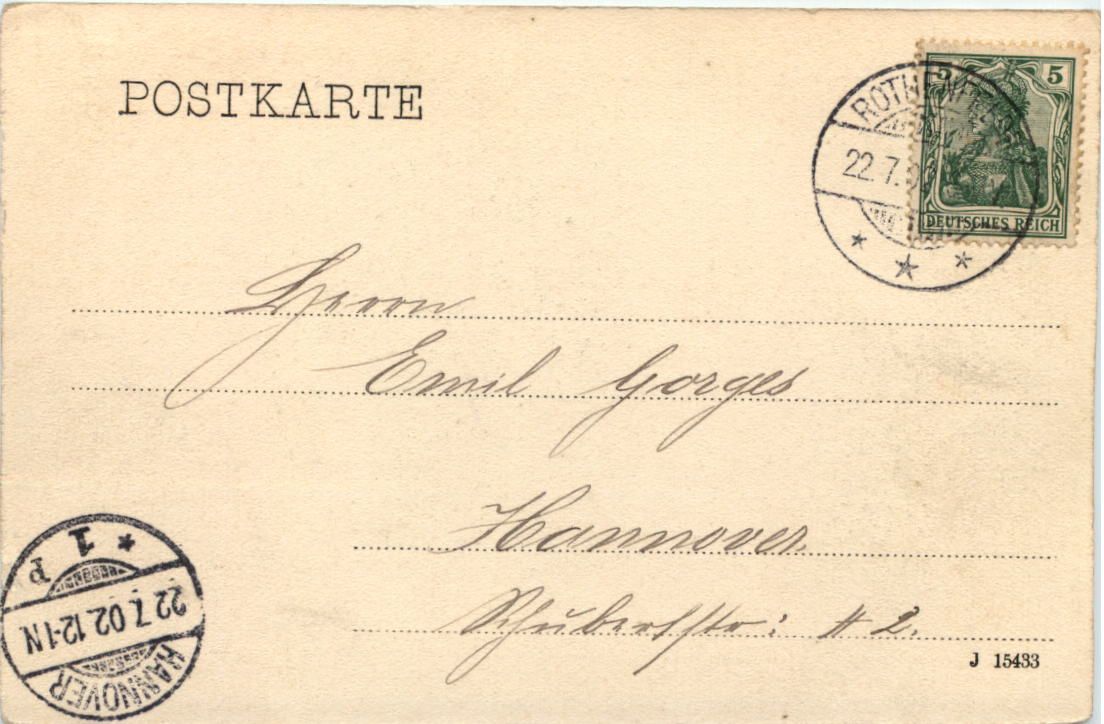 POSTKARTE
5 5
DEUTSCHES REICH
22.7.
Herrn
Emil Gorges
Hannover.
Schubertstr: # 2.
J 15433
* 1 P
22.7.02.12-1N
HANNOVER